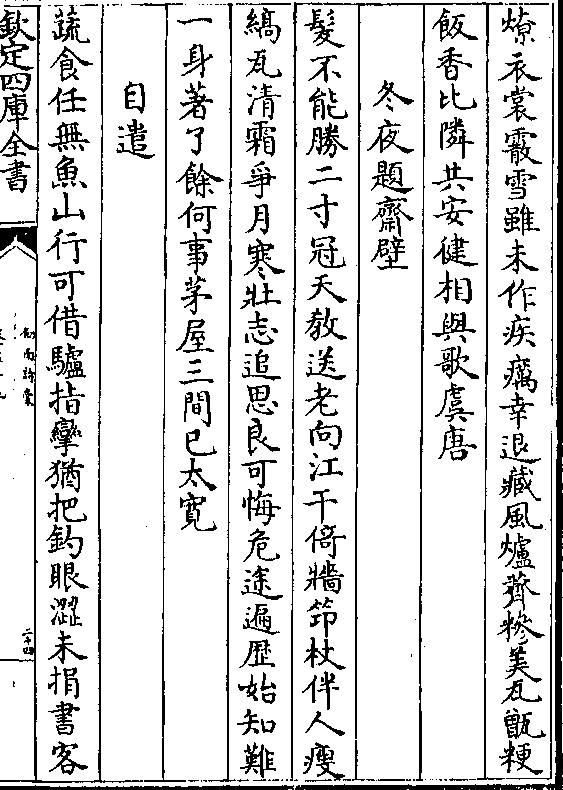 燎衣裳霰雪雖未作疾癘幸退藏風爐薺糝美瓦甑粳
飯香比隣共安健相與歌虞唐
冬夜題齋壁
髮不能勝二寸冠天教送老向江干倚牆笻杖伴人瘦
縞瓦清霜爭月寒壯志追思良可悔危途遍歴始知難
一身著了餘何事茅屋三間已太寛
自遣
蔬食任無魚山行可借驢指攣猶把釣眼澀未捐書客
欽定四庫全書
劍南詩稾
二十四